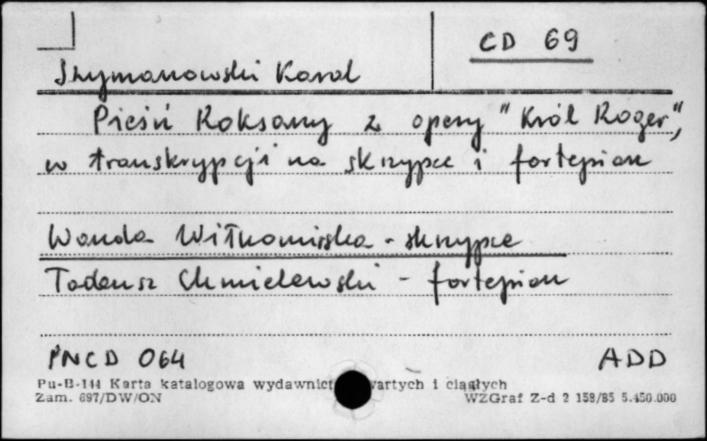 CD 69
Szymanowski Karol
Pieśń Roksany z opery "Król Roger",
w transkrypcji na skrzypce i fortepian
Wanda Wiłkomirska - skrzypce
Tadeusz Chmielewski - fortepian
PNCD 064 ADD
Pu-B-144 Karta katalogowa wydawnict wartych i ciągłych
Zam. 697/DW/ON WZGraf Z-d 2 158/85 5.450.000